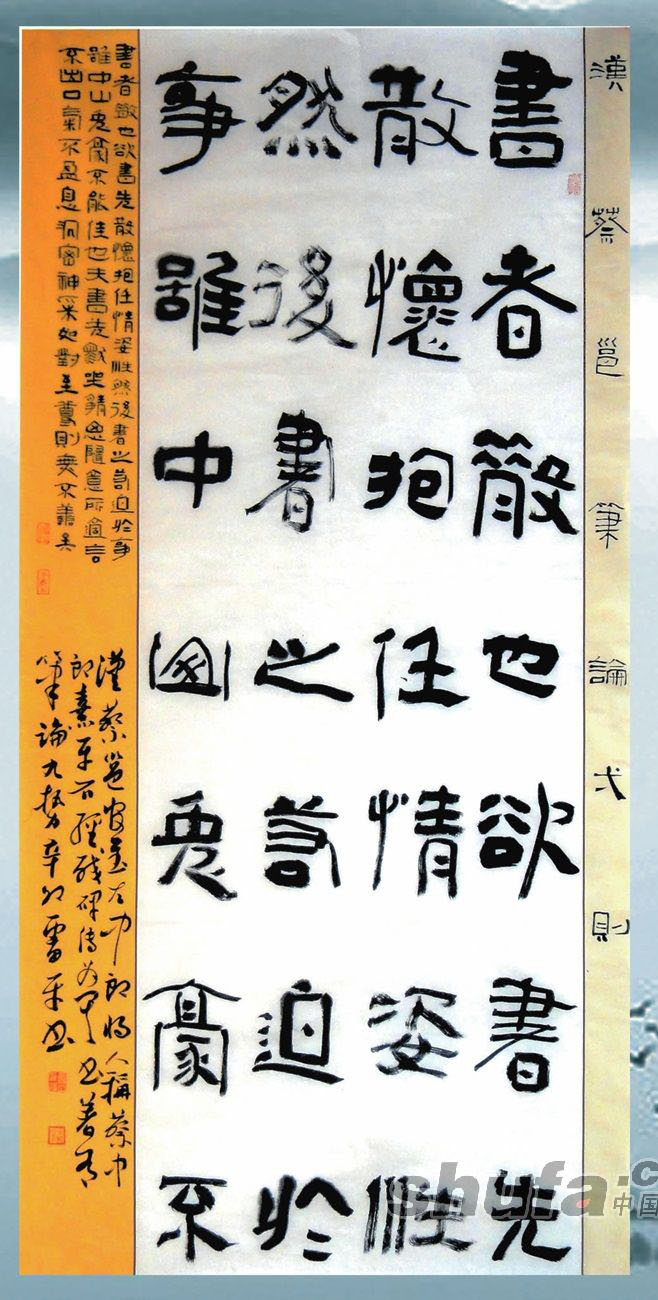 漢蔡邕筆論弌則
書者散也欲書先
散懷抱任情姿性
然後書之若迫於
事雖中山兔豪不
書者散也欲書先散懷抱任情姿性然後書之若迫於事
雖中山兔豪不能佳也夫書先默坐靜思隨意所適言
不出口氣不盈息沉密神采如對至尊則無不善矣
漢蔡邕官至左中郎將人稱蔡中
郎熹平石經殘碑傳為其書著有
筆論九勢辛卯雷平書
shufa.c
中国